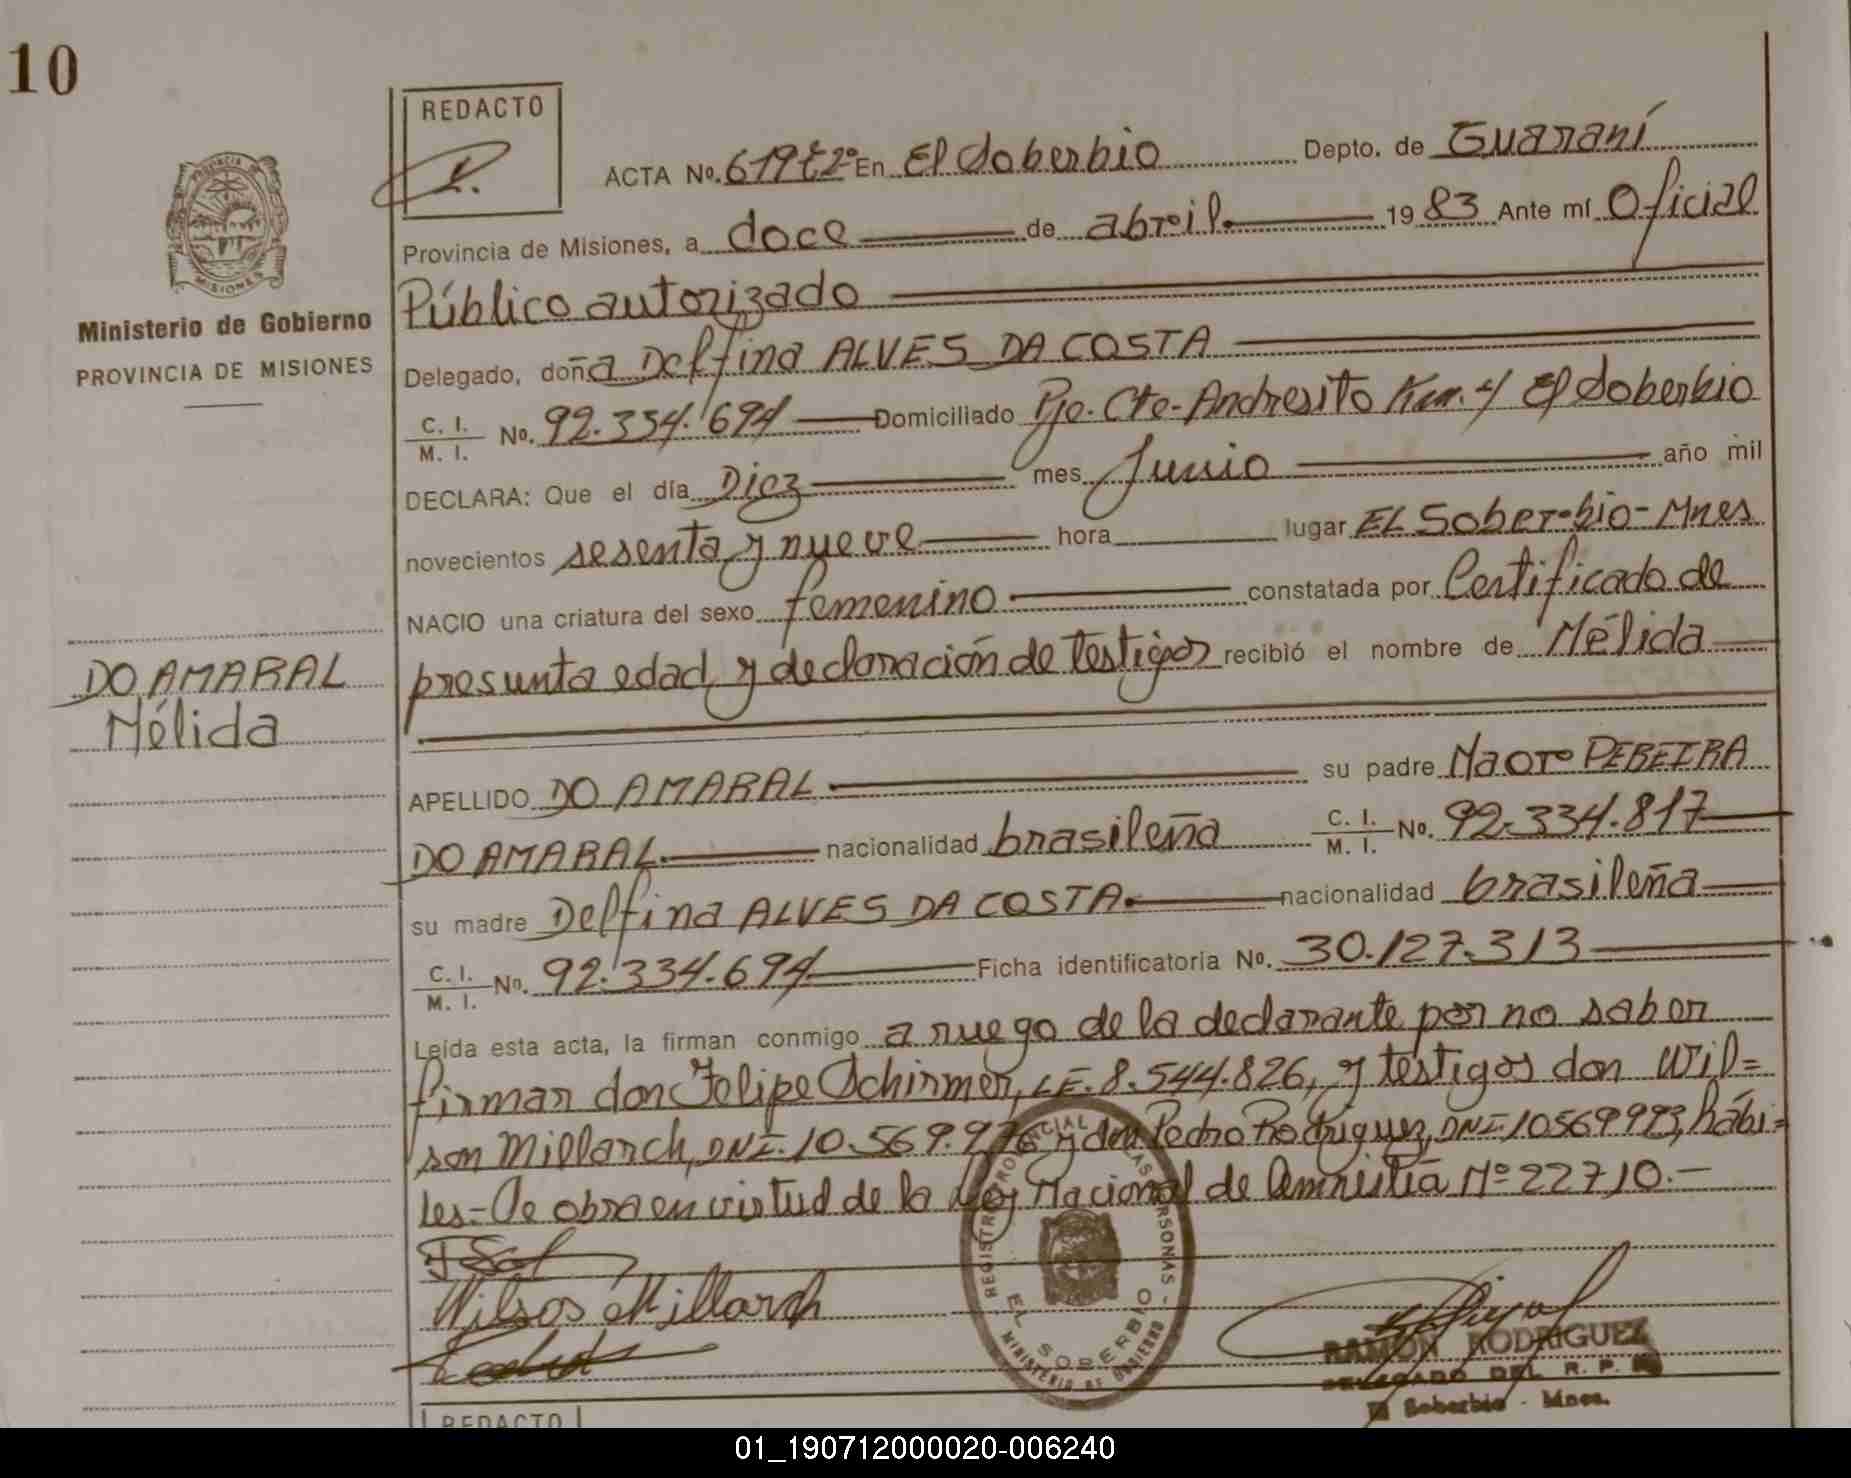 10
REDACTO
ACTA No. 619 t2º En El Soberbio Depto. de Guaraní
Provincia de Misiones, a doce de abril. 1983 Ante mí Oficial
Público autorizado
Delegado, doña Delfina ALVES DA COSTA
C. I. / M. I. No. 92.334.694 Domiciliado Pje. Cte. Andresito Km. 4 El Soberbio
DECLARA: Que el día Diez mes Junio año mil
novecientos sesenta y nueve hora lugar EL Soberbio - Mnes
NACIO una criatura del sexo femenino constatada por Certificado de
presunta edad y declaración de testigos recibió el nombre de Mélida
APELLIDO DO AMARAL su padre PEREIRA
DO AMARAL. nacionalidad brasileña C. I. / M. I. No. 92.334.817
su madre Delfina ALVES DA COSTA. nacionalidad brasileña
C. I. / M. I. No. 92.334.694 Ficha identificatoria No. 30.127.313
Leída esta acta, la firman conmigo a ruego de la declarante por no saber
firmar don Felipe Schirmer, L.E. 8.544.826, y testigos don Wil=
son Millarch, DNI. 10.569.976 y don Pedro Rodriguez, DNI 10569993, hábi=
les.- Se obra en virtud de la Ley Nacional de Amnistía Nº 22710.-
Wilson Millarch
REGISTRO PROVINCIAL DE LAS PERSONAS
EL SOBERBIO
MINISTERIO DE GOBIERNO
RAMON RODRIGUEZ
DELEGADO DEL R. P.
El Soberbio - Mnes.
REDACTO
PROVINCIA DE
MISIONES
Ministerio de Gobierno
PROVINCIA DE MISIONES
DO AMARAL
Mélida
01_190712000020-006240